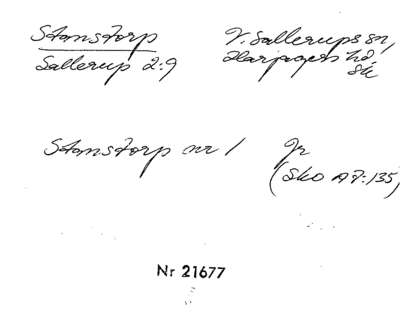 Stamstorp V. Sallerups sn,
Sallerup 2:9 Harjagers hd
Sk
Stamstorp nr 1 Jr
(SkO A 7:135)
Nr 21677